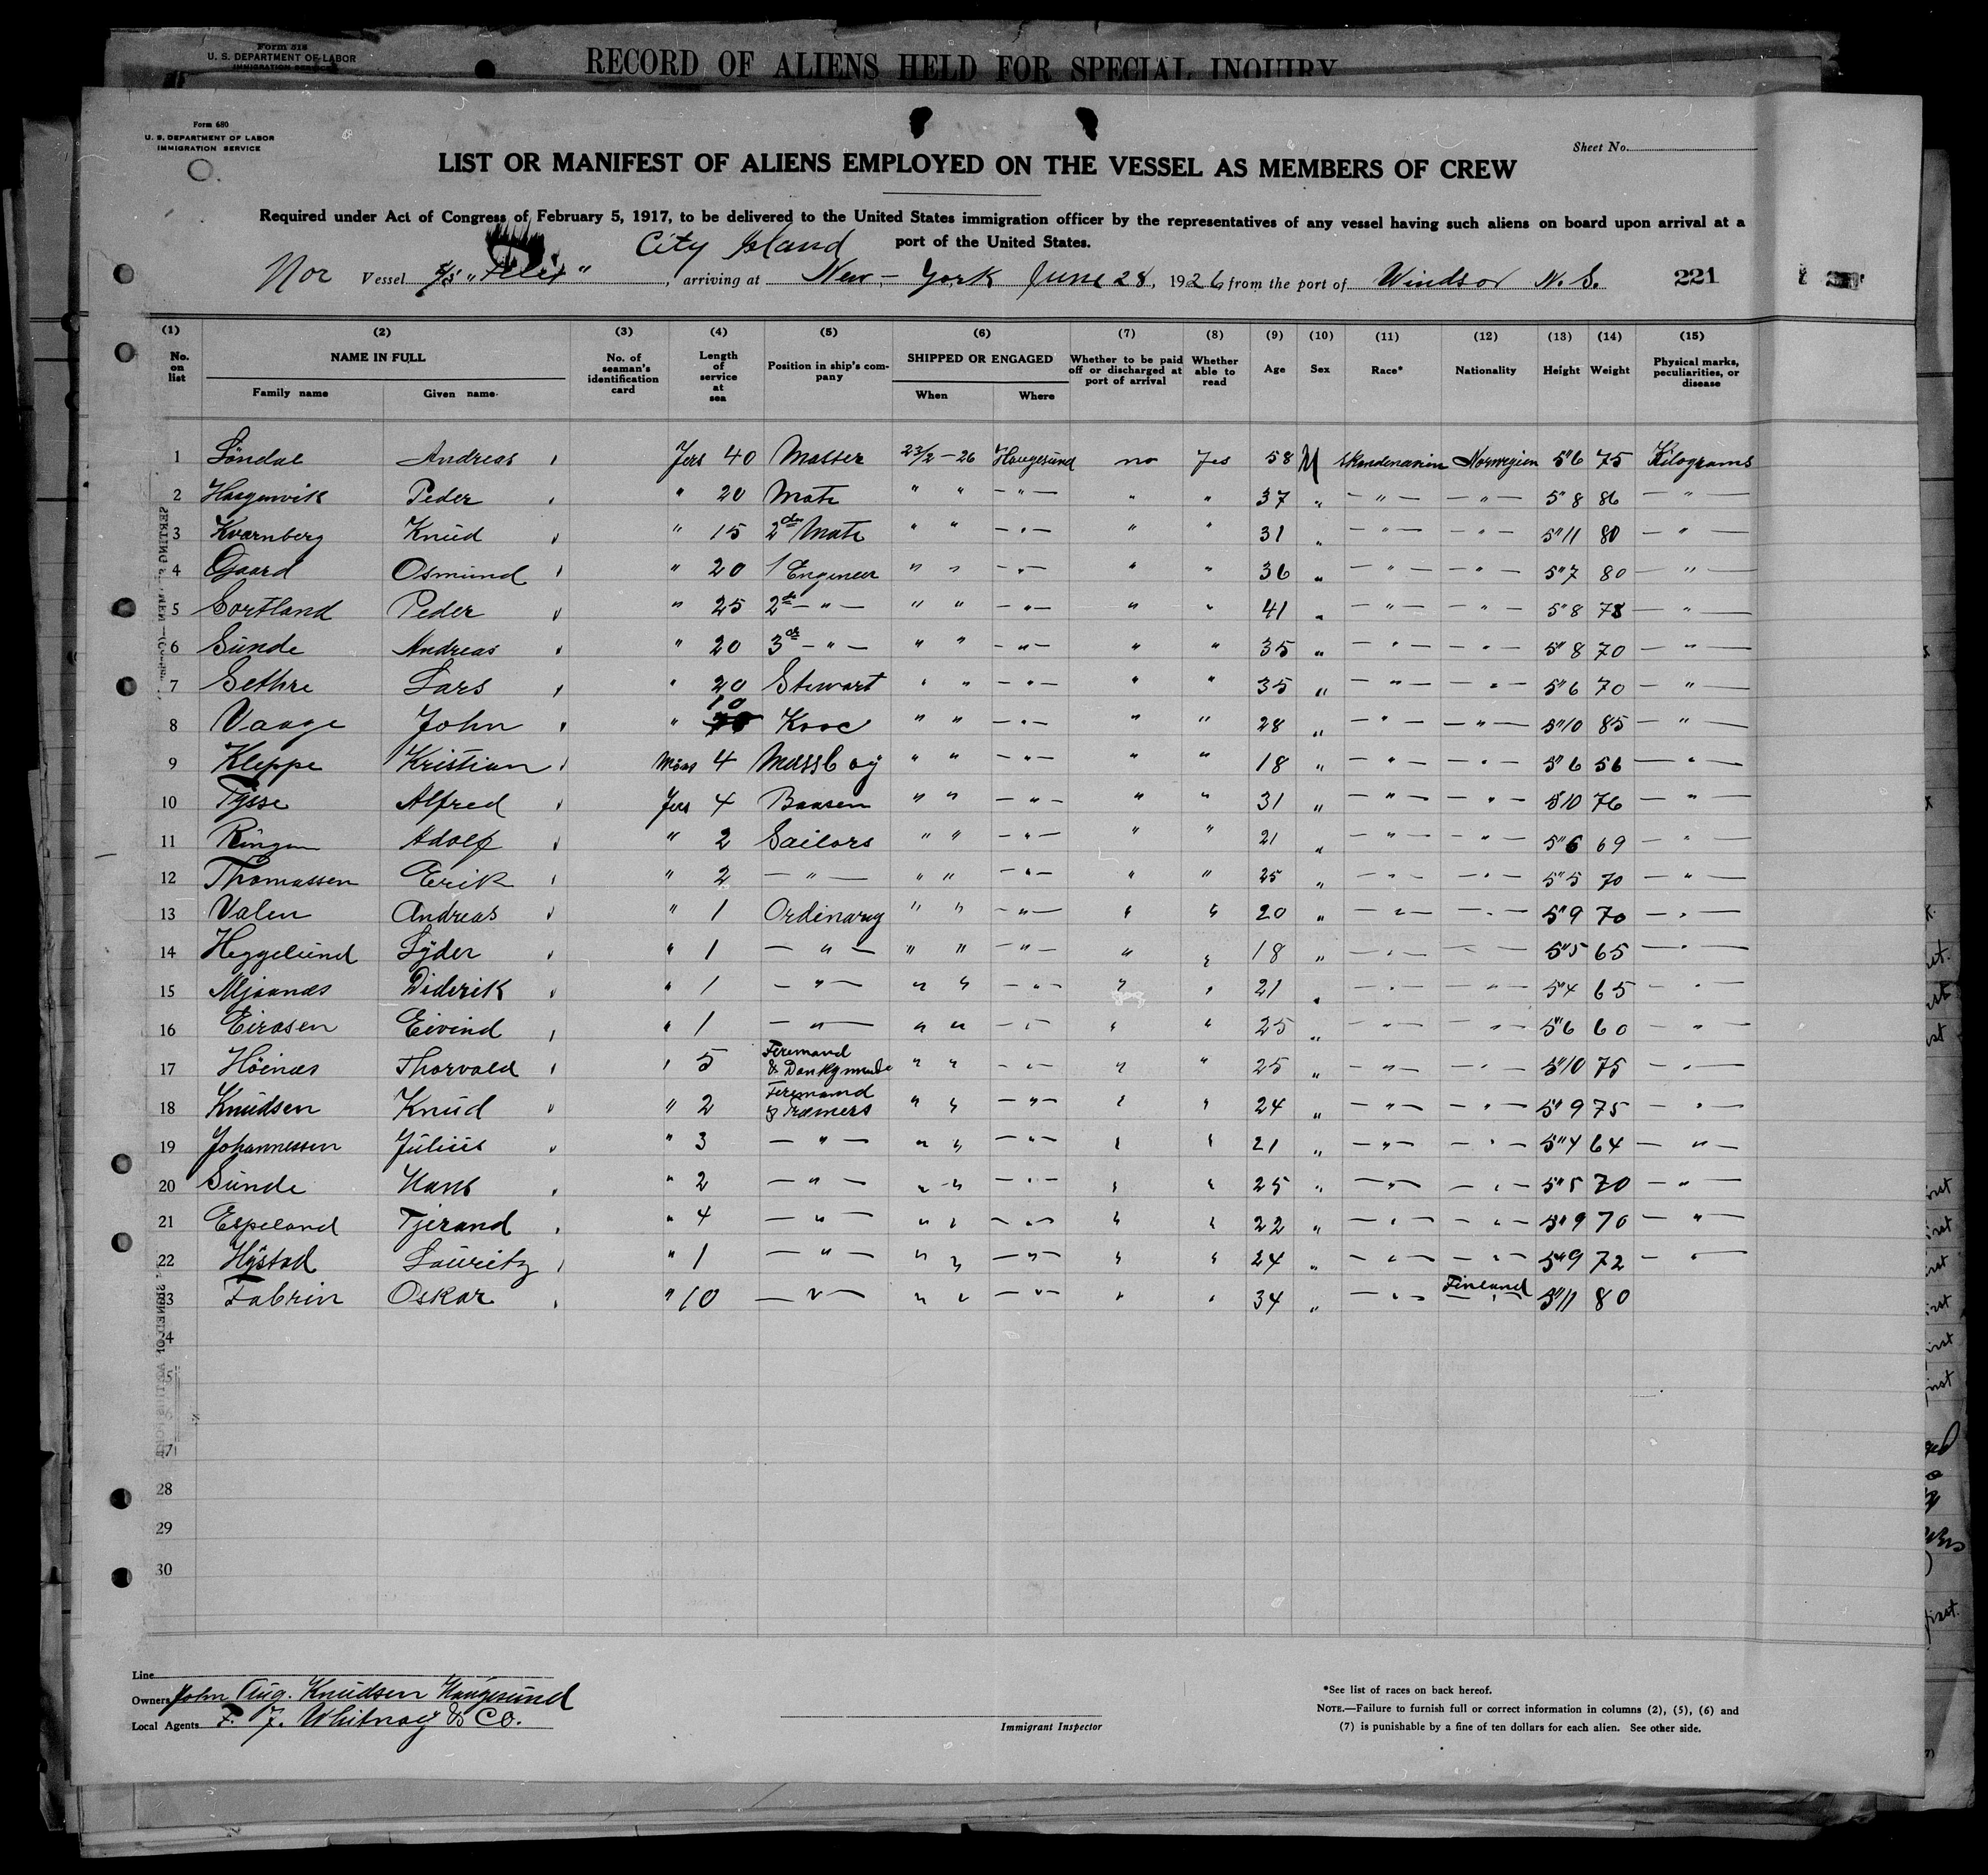 Form 318
U. S. DEPARTMENT OF LABOR
IMMIGRATION SERVICE
RECORD OF ALIENS HELD FOR SPECIAL INQUIRY
Form 680
U. S. DEPARTMENT OF LABOR
IMMIGRATION SERVICE
Sheet No.
LIST OR MANIFEST OF ALIENS EMPLOYED ON THE VESSEL AS MEMBERS OF CREW
Required under Act of Congress of February 5, 1917, to be delivered to the United States immigration officer by the representatives of any vessel having such aliens on board upon arrival at a
port of the United States.
City Island
Nor Vessel S/S "" , arriving at New-York June 28, 1926 from the port of Windsor N. S. 221
(1) (2) (3) (4) (5) (6) (7) (8) (9) (10) (11) (12) (13) (14) (15)
No. on list NAME IN FULL Family name Given name No. of seaman's identification card Length of service at sea Position in ship's company SHIPPED OR ENGAGED When Where Whether to be paid off or discharged at port of arrival Whether able to read Age Sex Race* Nationality Height Weight Physical marks, peculiarities, or disease
1 Söndal Andreas Yers 40 Master 23/2-26 Haugesund no Yes 58 M Skandenavien Norwegien 5"6 75 Kilograms
2 Haagenvik Peder " 20 Mate " " -"- " " 37 " -"- -"- 5"8 86 -"-
3 Kvarnberg Knud " 15 2de Mate " " -"- " " 31 " -"- -"- 5"11 80 -"-
4 Gaard Osmund " 20 1 Engineer " " -"- " " 36 " -"- -"- 5"7 80 -"-
5 Sortland Peder " 25 2de -"- " " -"- " " 41 " -"- -"- 5"8 78 -"-
6 Sunde Andreas " 20 3de -"- " " -"- " " 35 " -"- -"- 5"8 70 -"-
7 Sethre Lars " 20 Stewart " " -"- " " 35 " -"- -"- 5"6 70 -"-
8 Vaage John " 10 Kooc " " -"- " " 28 " -"- -"- 5"10 85 -"-
9 Kleppe Kristian Mons 4 Messboy " " -"- " " 18 " -"- -"- 5"6 56 -"-
10 Tysse Alfred Yers 4 Baasen " " -"- " " 31 " -"- -"- 5"10 76 -"-
11 Ringen Adolf " 2 Sailors " " -"- " " 21 " -"- -"- 5"6 69 -"-
12 Thomassen Erik " 2 -"- " " -"- " " 25 " -"- -"- 5"5 70 -"-
13 Valen Andreas " 1 Ordinary " " -"- " " 20 " -"- -"- 5"9 70 -"-
14 Heggelund Lyder " 1 -"- " " -"- " " 18 " -"- -"- 5"5 65 -"-
15 Mjaanes Diderik " 1 -"- " " -"- " " 21 " -"- -"- 5"4 65 -"-
16 Eirasen Eivind " 1 -"- " " -"- " " 25 " -"- -"- 5"6 60 -"-
17 Höines Thorvald " 5 Firemand & " " -"- " " 25 " -"- -"- 5"10 75 -"-
18 Knudsen Knud " 2 Firemand & Træmers " " -"- " " 24 " -"- -"- 5"9 75 -"-
19 Johannessen Julius " 3 -"- " " -"- " " 21 " -"- -"- 5"4 64 -"-
20 Sunde Hans " 2 -"- " " -"- " " 25 " -"- -"- 5"5 70 -"-
21 Espeland Tjerand " 4 -"- " " -"- " " 22 " -"- -"- 5"9 70 -"-
22 Hystad Lauritz " 1 -"- " " -"- " " 24 " -"- -"- 5"9 72 -"-
23 Fabrin Oskar " 10 -"- " " -"- " " 34 " -"- Finland 5"11 80
24
28
29
30
Line
Owners John Aug. Knudsen Haugesund
Local Agents F. J. Whitnay & Co.
Immigrant Inspector
*See list of races on back hereof.
NOTE.—Failure to furnish full or correct information in columns (2), (5), (6) and
(7) is punishable by a fine of ten dollars for each alien. See other side.